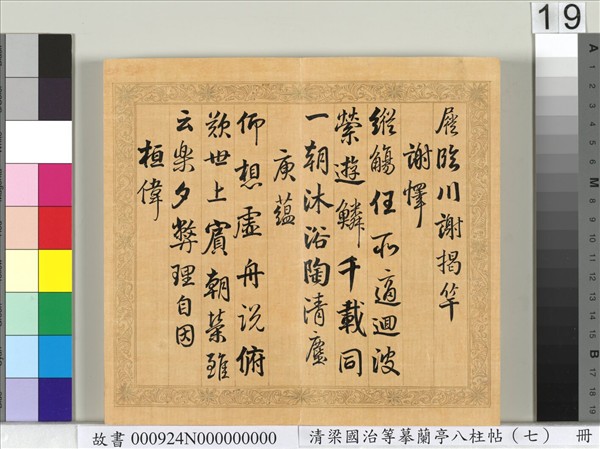 屐臨川謝揭竿
謝懌
縱觴任所適迴波
縈遊鱗千載同
一朝沐浴陶清塵
庾蘊
仰想虛舟說俯
歎世上賓朝榮雖
云樂夕弊理自因
桓偉
19
故書 000924N000000000
清梁國治等摹蘭亭八柱帖(七) 冊